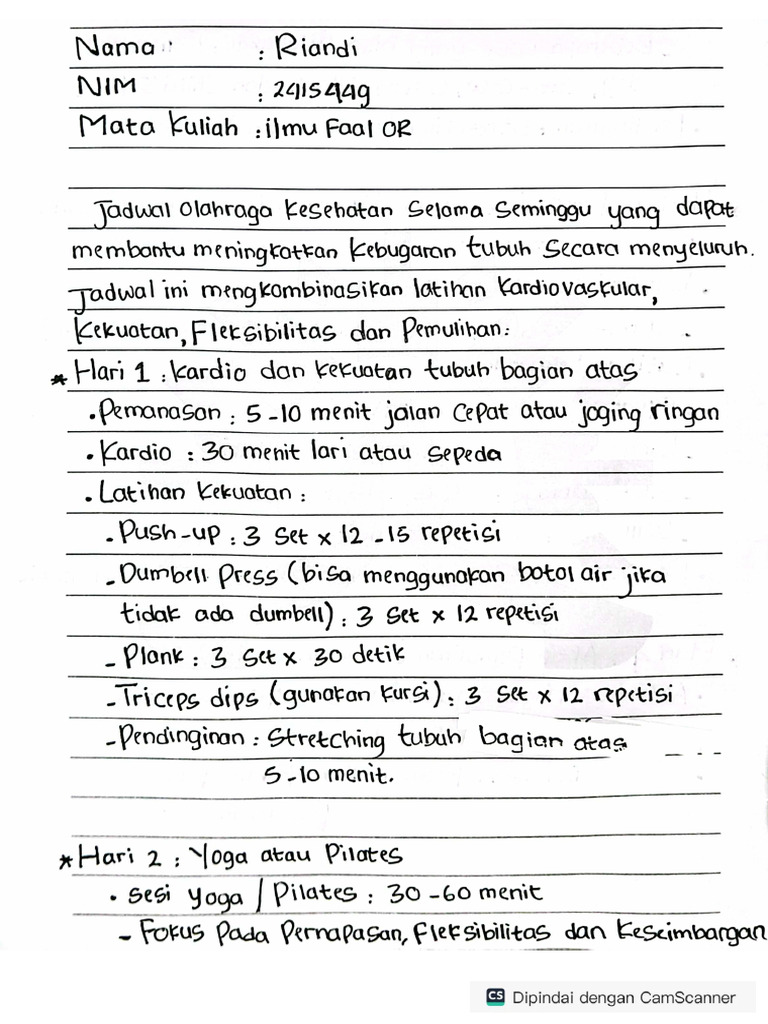 Nama : Riandi
NIM : 2415449
Mata Kuliah : ilmu Faal OR
Jadwal Olahraga Kesehatan Selama Seminggu yang dapat
membantu meningkatkan Kebugaran tubuh Secara menyeluruh.
Jadwal ini mengkombinasikan latihan Kardiovaskular,
Kekuatan, Fleksibilitas dan Pemulihan:
* Hari 1 : Kardio dan kekuatan tubuh bagian atas
• Pemanasan : 5-10 menit jalan cepat atau joging ringan
• Kardio : 30 menit lari atau sepeda
• Latihan Kekuatan :
• Push-up : 3 Set x 12-15 repetisi
- Dumbell Press (bisa menggunakan botol air jika
tidak ada dumbell) : 3 Set x 12 repetisi
- Plank : 3 Set x 30 detik
- Triceps dips (gunakan Kursi) : 3 Set x 12 repetisi
- Pendinginan : Stretching tubuh bagian atas
5-10 menit.
* Hari 2 : Yoga atau Pilates
• Sesi Yoga / Pilates : 30-60 menit
- Fokus Pada Pernapasan, Fleksibilitas dan Keseimbangan
CS Dipindai dengan CamScanner